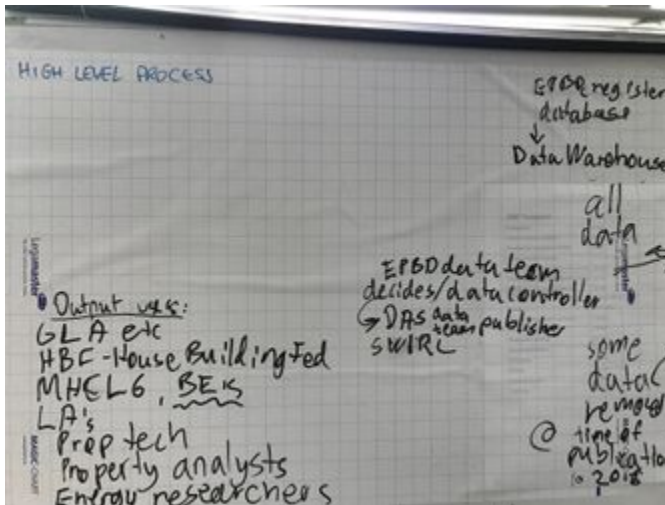 HIGH LEVEL PROCESS
EPBR register
database
↓
Data Warehouse
all
data
EPBD data team
decides/data controller
DAS data team publisher
SWIRL
some
data
removed
@ time of
publication
2018
Output uses:
GLA etc
HBF - House Building Fed
MHCLG, BEIS
LA's
Prop tech
Property analysts
Energy researchers
Legamaster
Legamaster
MAGIC-CHART